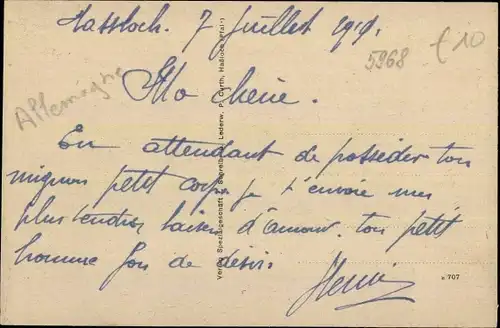 Hassloch. 7 Juillet 1919.
5968
£10
Allemagne
Ma chérie.
En attendant de posséder ton
mignon petit corps je t'envoie mes
plus tendres baisers d'amour. ton petit
homme fou de désir.
Henri
Verlag Spezialgeschäft f. Schreib- u. Lederw. P. Gürth, Haßloch (Pfalz)
707